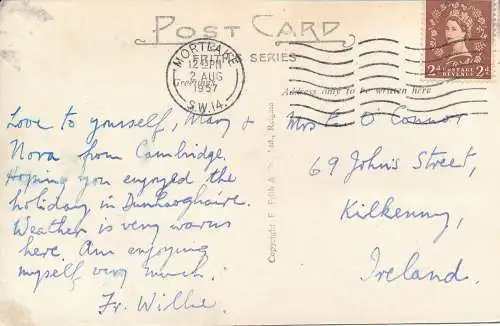 POST CARD
FRITH'S SERIES
MORTLAKE
12 PM
2 AUG
1957
S.W.14.
Greetings
Address only to be written here
POSTAGE
REVENUE
2d 2d
Love to yourself, Mary &
Nora from Cambridge.
Hoping you enjoyed the
holiday in Dunlaoghaire.
Weather is very warm
here. Am enjoying
myself very much.
Fr. Willie.
Copyright F. Frith & Ltd., Reigate
Mrs O'Connor
69 John's Street,
Kilkenny,
Ireland.